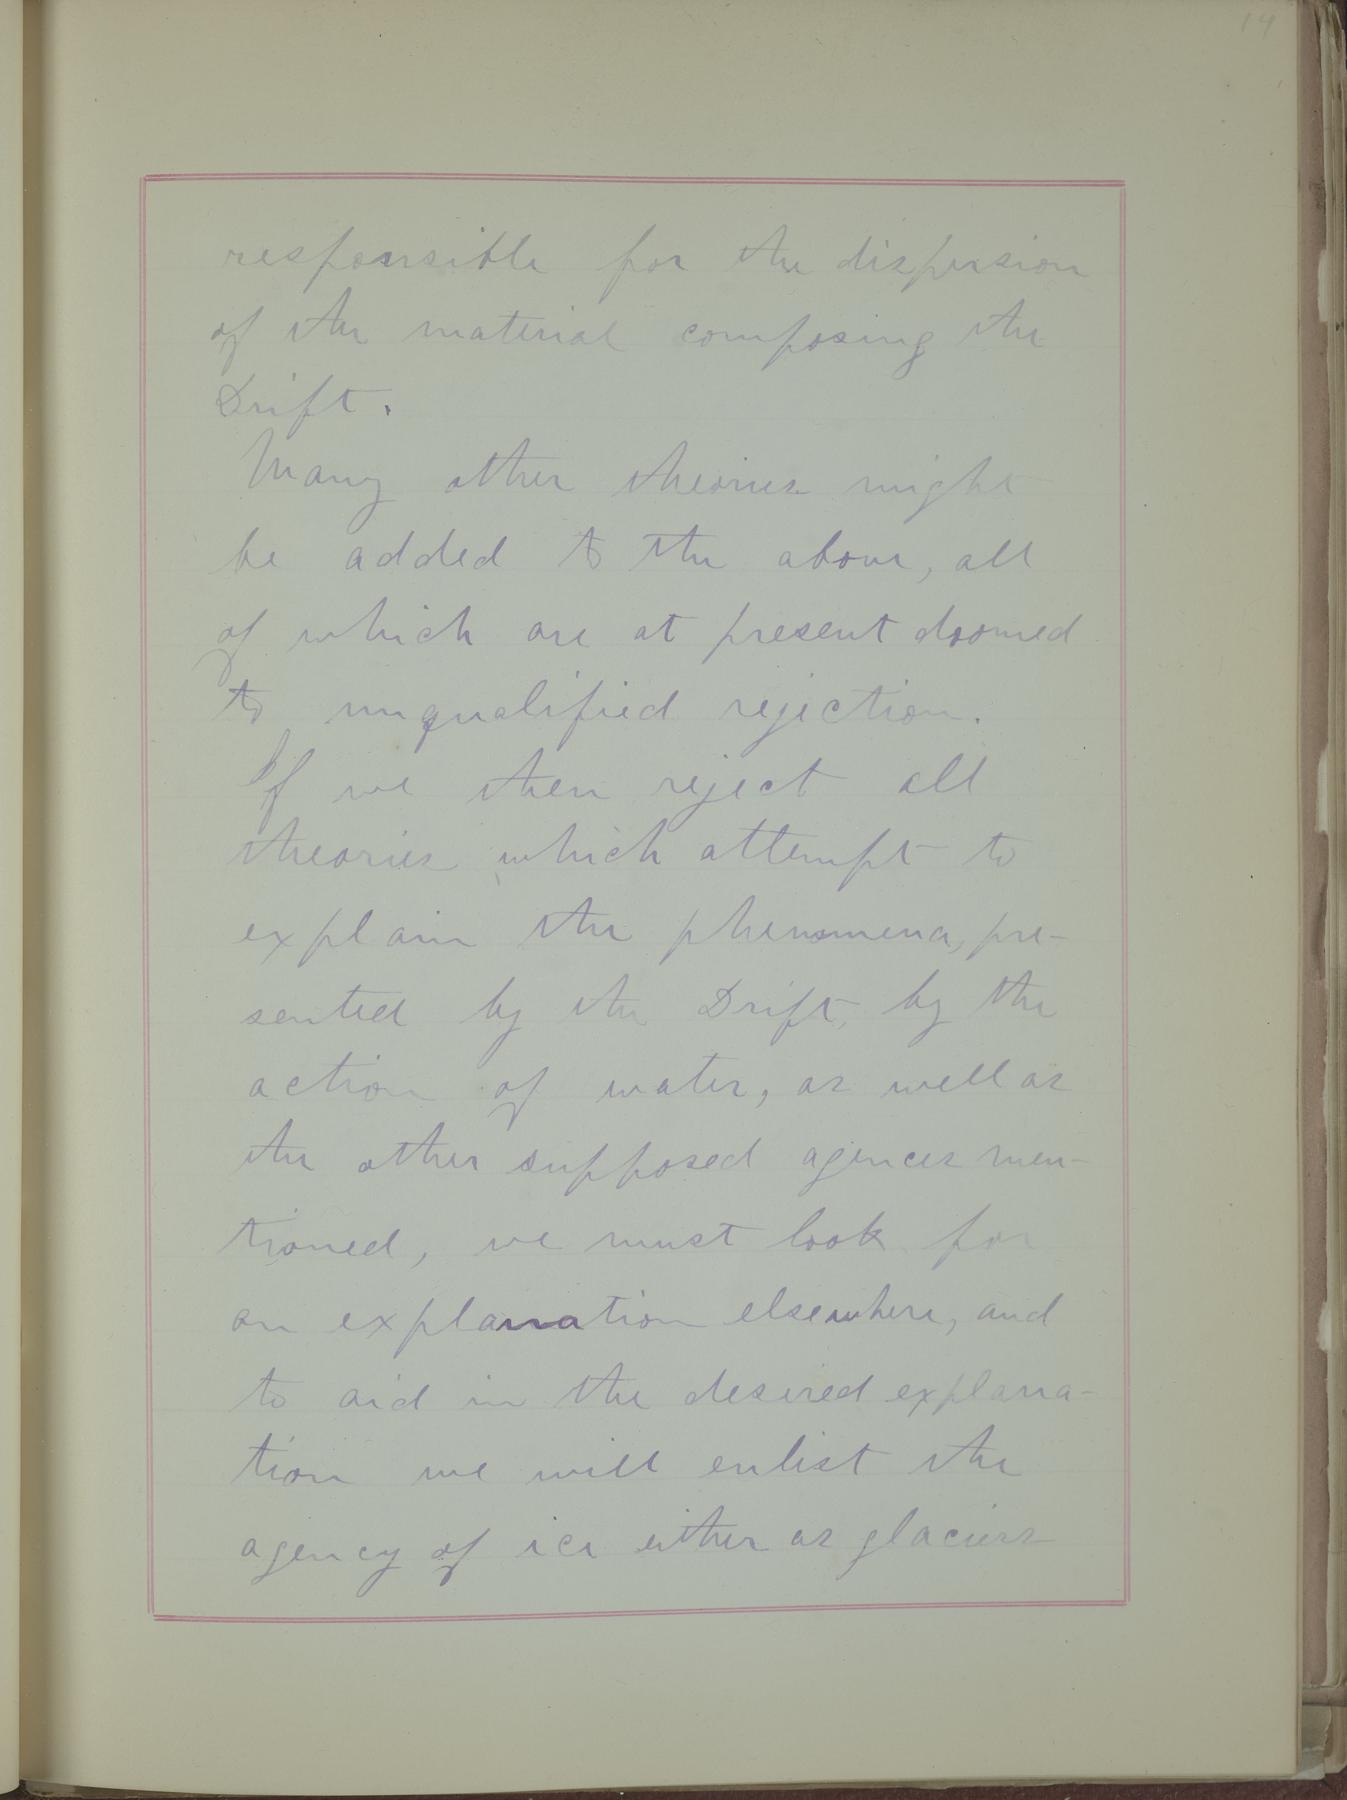 14
responsible for the dispersion
of the material composing the
Drift.
Many other theories might
be added to the above, all
of which are at present doomed
to unqualified rejection.
If we then reject all
theories which attempt to
explain the phenomena, pre-
sented by the Drift, by the
action of water, as well as
the other supposed agences men-
tioned, we must look for
an explanation elsewhere, and
to aid in the desired explana-
tion we will enlist the
agency of ice either as glaciers